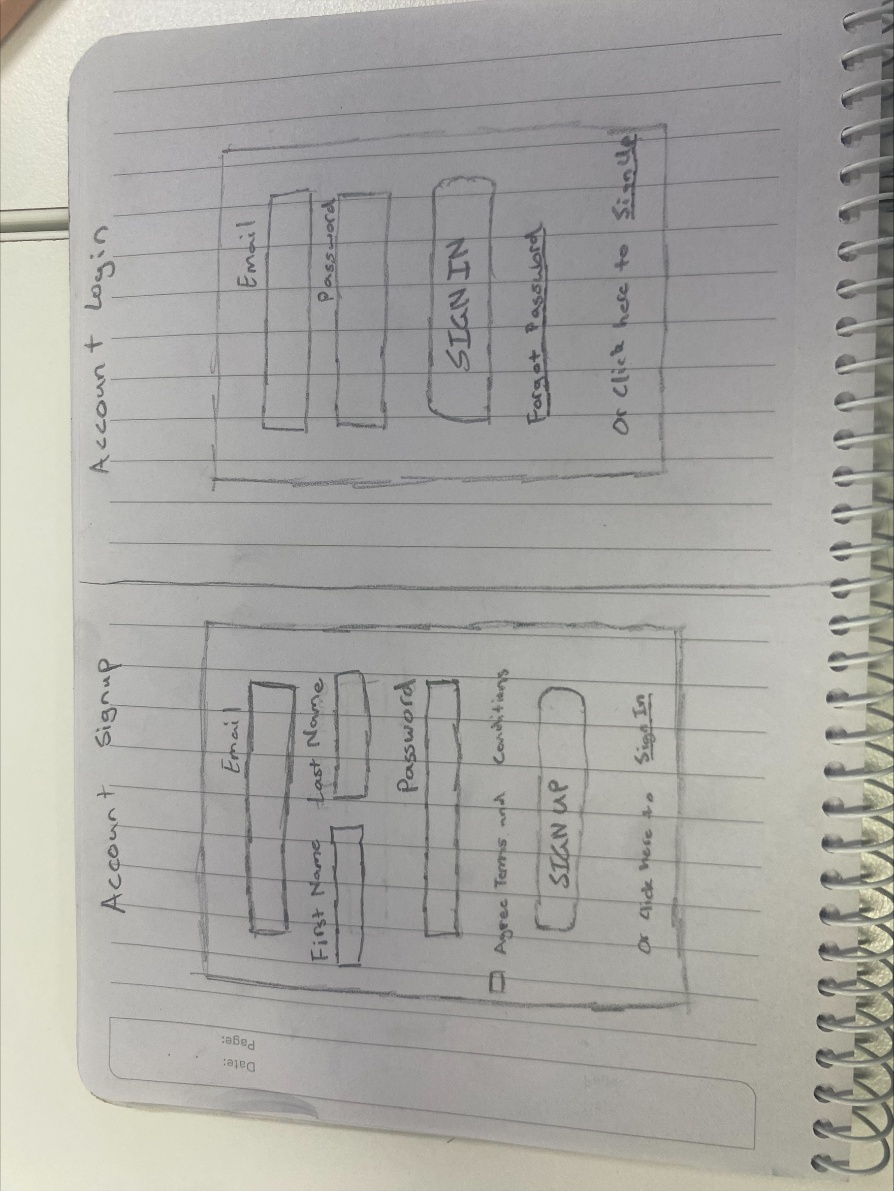 Account Signup
Email
First Name Last Name
Password
Agree Terms and Conditions
SIGN UP
Or Click here to Sign In
Account Login
Email
Password
SIGN IN
Forgot Password
Or Click here to Sign Up
Date:
Page: